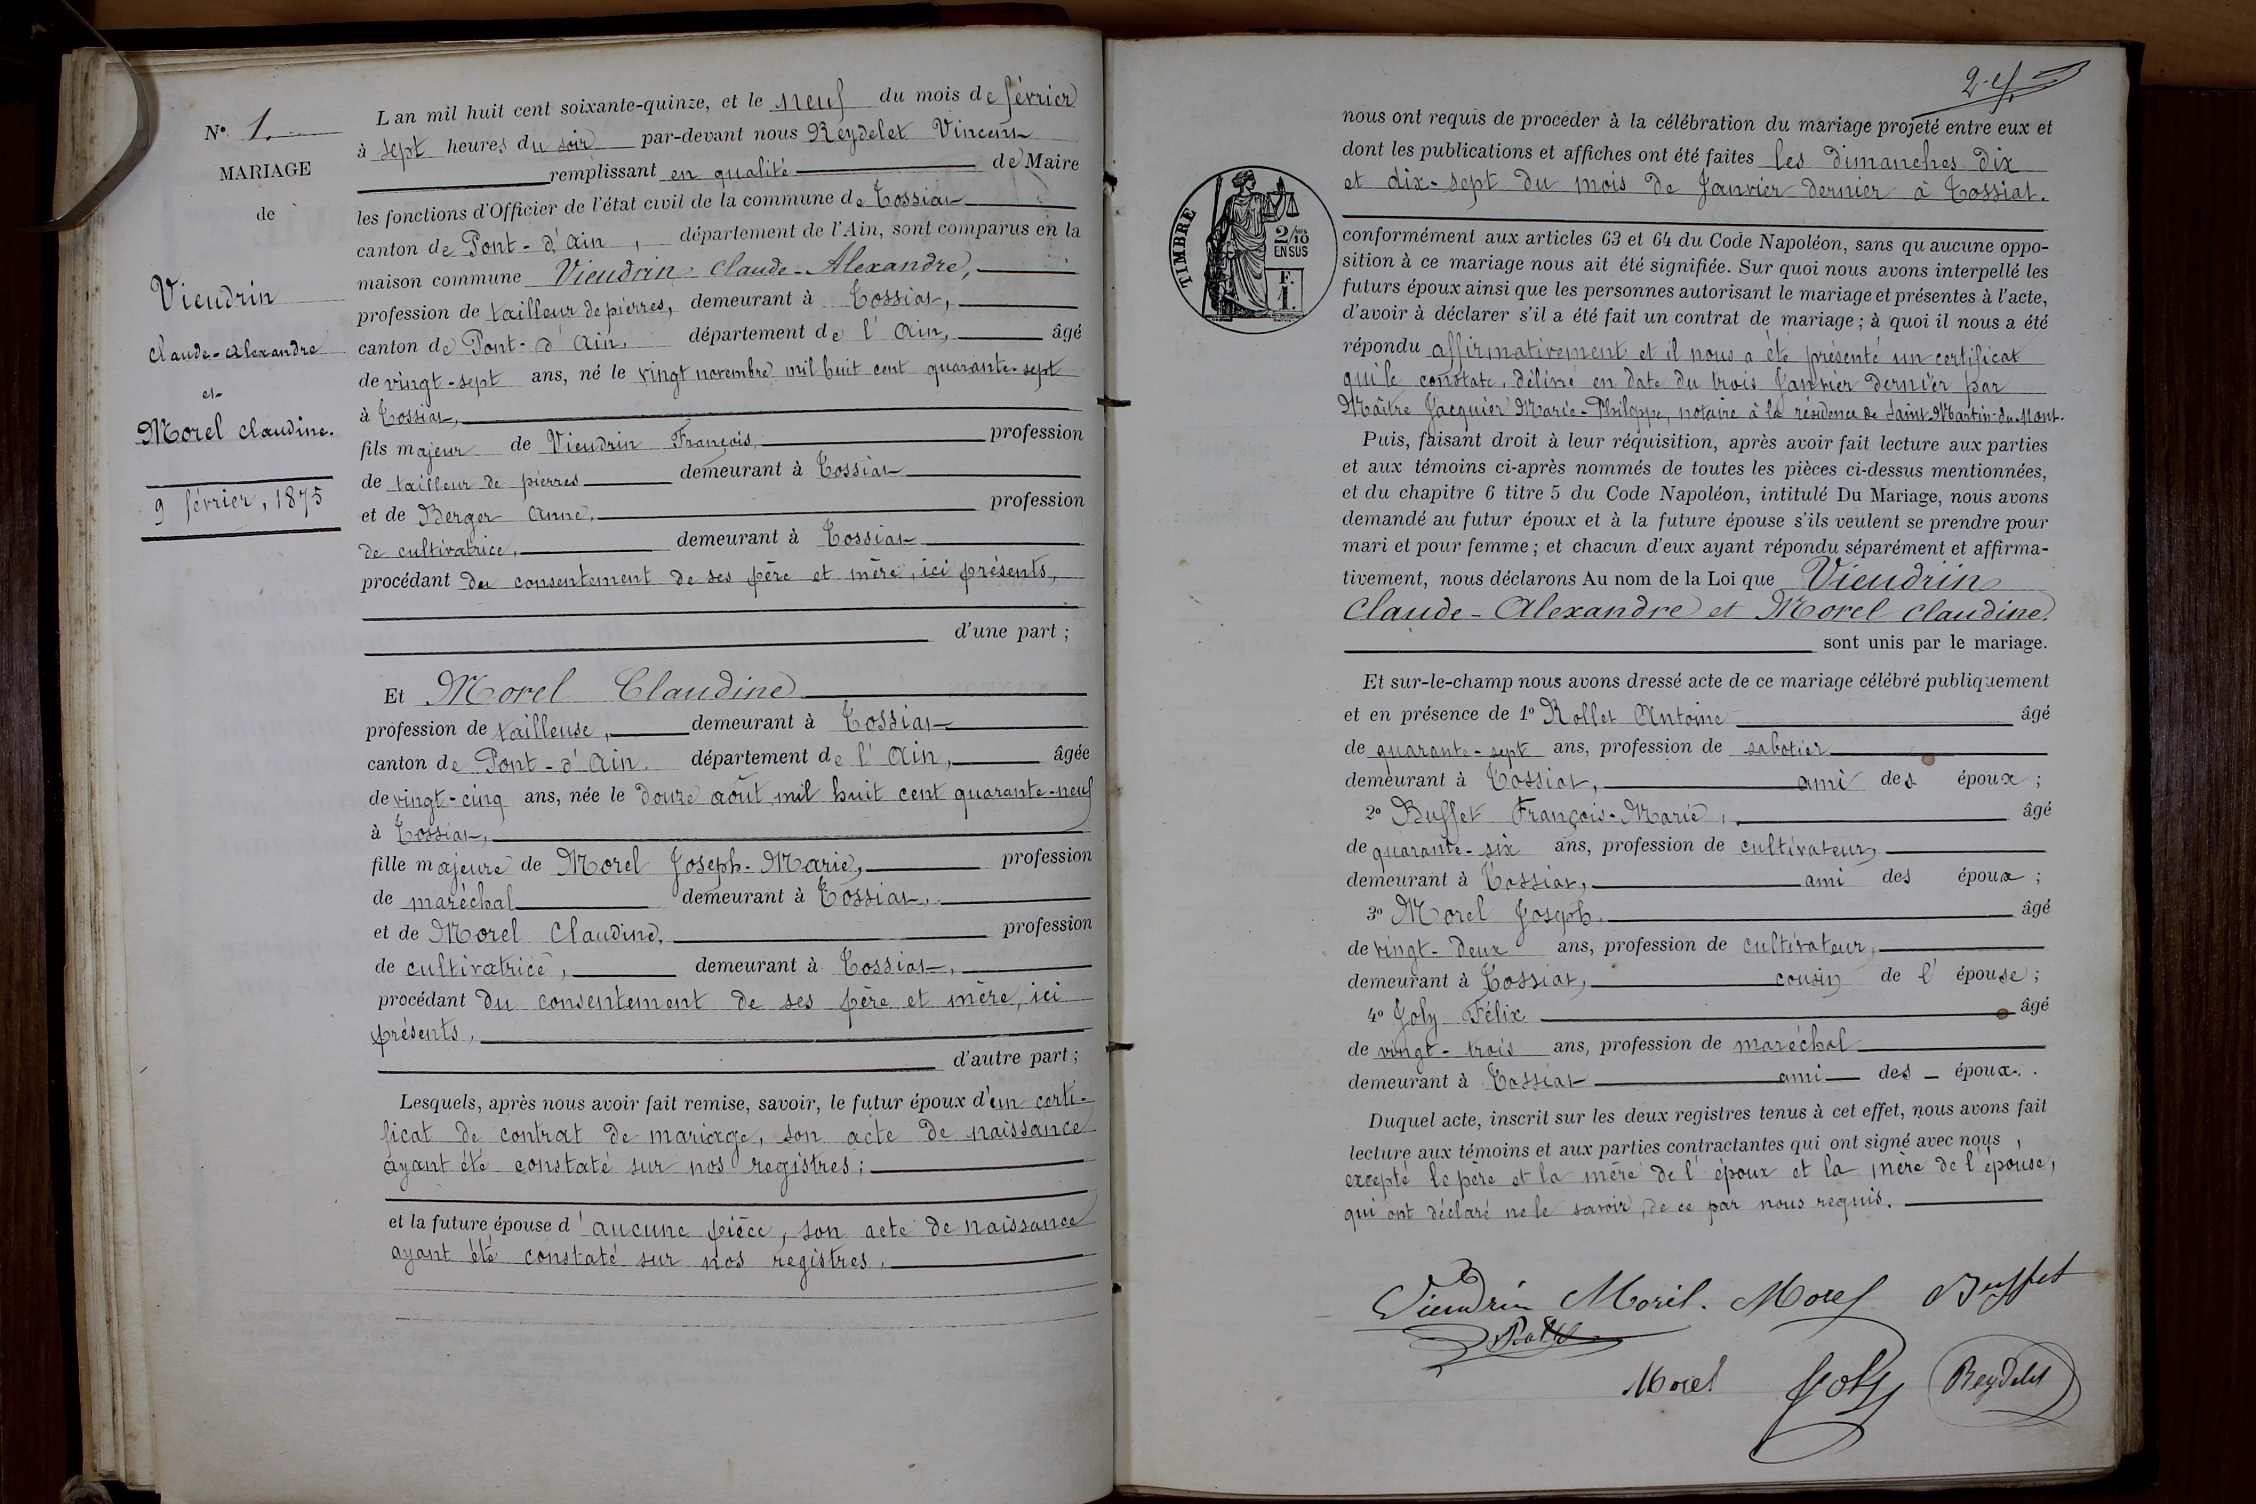 N° 1.
MARIAGE
de
Vieudrin
Claude-Alexandre
et
Morel Claudine.
9 février, 1875
L an mil huit cent soixante-quinze, et le neuf du mois de février
à sept heures du soir par-devant nous Reydelet Vincent
remplissant en qualité de Maire
les fonctions d'Officier de l'état civil de la commune de Tossiat
canton de Pont-d'Ain, département de l'Ain, sont comparus en la
maison commune Vieudrin Claude-Alexandre,
profession de tailleur de pierres, demeurant à Tossiat,
canton de Pont-d'Ain, département de l'Ain, âgé
de vingt-sept ans, né le vingt novembre mil huit cent quarante-sept
à Tossiat,
fils majeur de Vieudrin François, profession
de tailleur de pierres demeurant à Tossiat
et de Berger Anne, profession
de cultivatrice, demeurant à Tossiat
procédant du consentement de ses père et mère, ici présents,
d'une part ;
Et Morel Claudine
profession de tailleuse, demeurant à Tossiat
canton de Pont-d'Ain. département de l'Ain, âgée
de vingt-cinq ans, née le douze août mil huit cent quarante-neuf
à Tossiat,
fille majeure de Morel Joseph-Marie, profession
de maréchal demeurant à Tossiat,
et de Morel Claudine, profession
de cultivatrice, demeurant à Tossiat,
procédant du consentement de ses père et mère, ici
présents,
d'autre part ;
Lesquels, après nous avoir fait remise, savoir, le futur époux d'un certi-
ficat de contrat de mariage, son acte de naissance
ayant été constaté sur nos registres ;
et la future épouse d'aucune pièce, son acte de naissance
ayant été constaté sur nos registres.
TIMBRE
2/10
EN SUS
F.
1.
nous ont requis de procéder à la célébration du mariage projeté entre eux et
dont les publications et affiches ont été faites les dimanches dix
et dix-sept du mois de Janvier dernier à Tossiat.
conformément aux articles 63 et 64 du Code Napoléon, sans qu aucune oppo-
sition à ce mariage nous ait été signifiée. Sur quoi nous avons interpellé les
futurs époux ainsi que les personnes autorisant le mariage et présentes à l'acte,
d'avoir à déclarer s'il a été fait un contrat de mariage ; à quoi il nous a été
répondu affirmativement et il nous a été présenté un certificat
qui le constate, délivré en date du trois Janvier dernier par
Maître Jacquier Marie-Philippe, notaire à la résidence de Saint-Martin-du-Mont.
Puis, faisant droit à leur réquisition, après avoir fait lecture aux parties
et aux témoins ci-après nommés de toutes les pièces ci-dessus mentionnées,
et du chapitre 6 titre 5 du Code Napoléon, intitulé Du Mariage, nous avons
demandé au futur époux et à la future épouse s'ils veulent se prendre pour
mari et pour femme ; et chacun d'eux ayant répondu séparément et affirma-
tivement, nous déclarons Au nom de la Loi que Vieudrin
Claude-Alexandre et Morel Claudine
sont unis par le mariage.
Et sur-le-champ nous avons dressé acte de ce mariage célébré publiquement
et en présence de 1° Rollet Antoine âgé
de quarante-sept ans, profession de sabotier
demeurant à Tossiat, ami des époux ;
2° Buffet François-Marie, âgé
de quarante-six ans, profession de cultivateur,
demeurant à Tossiat, ami des époux ;
3° Morel Joseph, âgé
de vingt-deux ans, profession de cultivateur,
demeurant à Tossiat, cousin de l'épouse ;
4° Joly Félix âgé
de vingt-trois ans, profession de maréchal
demeurant à Tossiat ami des époux.
Duquel acte, inscrit sur les deux registres tenus à cet effet, nous avons fait
lecture aux témoins et aux parties contractantes qui ont signé avec nous,
excepté le père et la mère de l'époux et la mère de l'épouse,
qui ont déclaré ne le savoir, de ce par nous requis.
Vieudrin Morel. Morel Buffet
Rollet
Morel Joly Reydelet